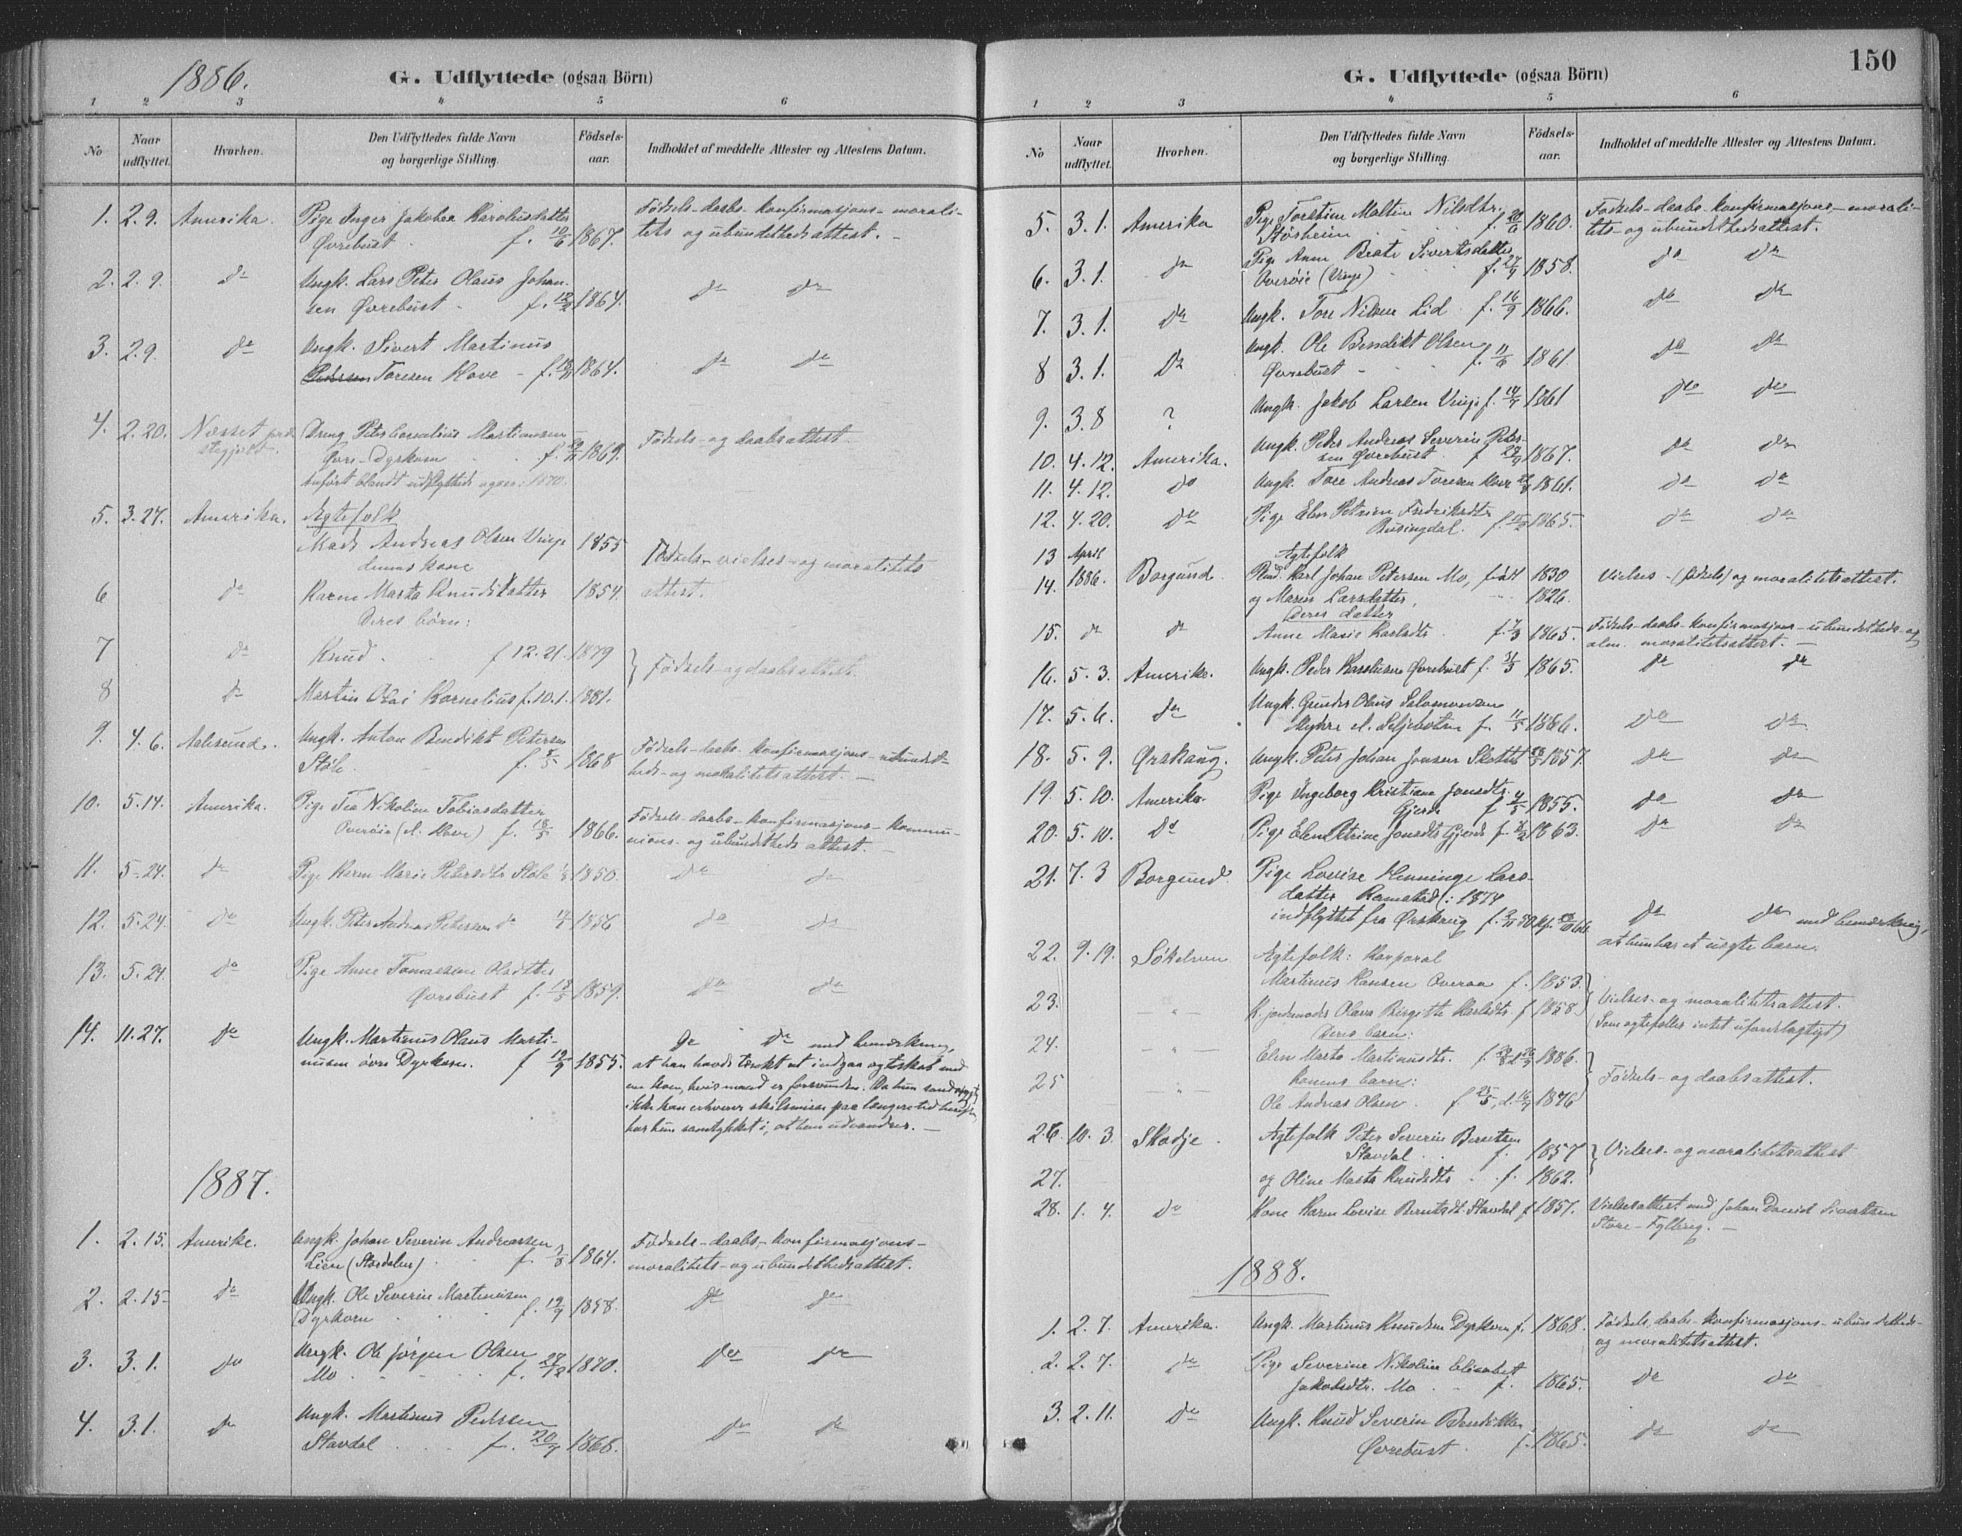 1886.
G. Udflyttede (ogsaa Börn)
1 2 3 4 5 6
No
Naar udflyttet.
Hvorhen.
Den Udflyttedes fulde Navn og borgerlige Stilling.
Födsels-aar.
Indholdet af meddelte Attester og Attestens Datum.
1. 2.9. Amerika. Pige Inger Jakobea Karolusdatter Födsels- daabs- konfirmasjons- morali-
Øvrebust f. 10/6 1867. tets og ubundethedsattest. -
2. 2.9. do Ungk. Lars Peter Olaus Johan-
sen Øvrebust - 1864. do do
3. 2.9. do Ungk. Sivert Martinus
Pedersen Toresen Hove - 1864. do do
4. 2.20. Nesset præ- Dreng Peter Cornelius Martinussen
stegjeld. Øvre-Dyrkorn f. 1869. Födsels- og daabsattest.
anfört blandt udflyttede ogsaa: 1870.
5. 3.27. Amerika. Ægtefolk
Mads Andreas Olsen Vinje 1855 Fødsels- vielses- og moralitets
hans kone
6 do Karen Marta Knudsdatter 1854. attest.
Deres börn:
7 do Knud f 12.21. 1879 Födsels- og daabsattest.
8 do Martin Olai Kornelius f. 10.1. 1881.
9. 4.6. Aalesund. Ungk. Anton Bendikt Petersen Födsels- daabs- konfirmasjons- ubundet-
Støle. f. 1868 heds- og moralitetsattest. -
10. 5.14. Amerika. Pige Tea Nikoline Tobiasdatter Födsels- daabs- konfirmasjons- kommu-
Overøie (el. Hove) f. 18/5 1866. nions- og ubundetheds attest. -
11. 5.24. do Pige Karen Marie Petersdtr Støle 1850. do do
12. 5.24. do Ungk. Peter Andreas Petersen do 1856 do do
13. 5.24. do Pige Anne Tomassine Olsdtter
Øvrebust f. 1859. do do
14. 11.27. do Ungk. Martinus Olaus Marti- do do med bemerkning,
nusen øvre Dyrkorn. f 19/9 1855. at han havde tænkt at indgaa egteskab med
en kone, hvis mand er forsvunden. Da hun
ikke kan erhverve skilsmisse paa længere tid
har hun samtykket i, at han udvandrer. -
1887.
1. 2.15. Amerika. Ungk. Johan Severin Andreassen Födsels- daabs- konfirmasjons-
Lien (Stavdalen) f. 1864. moralitets- og ubundethedsattest.
2. 2.15 do Ungk. Ole Severin Martinusen
Dyrkorn f. 19/9 1858. do do
3. 3.1. do Ungk. Ole Jørgen Olsen
Mo f. 1870. do do
4. 3.1. do Ungk. Martinus Pedersen
Stavdal f. 20/7 1868. do do
150
G. Udflyttede (ogsaa Börn)
1 2 3 4 5 6
No
Naar udflyttet.
Hvorhen.
Den Udflyttedes fulde Navn og borgerlige Stilling.
Födsels-aar.
Indholdet af meddelte Attester og Attestens Datum.
5. 3.1. Amerika Pige Torstine Maltine Nilsdtr. Födsels- daabs- konfirmasjons- morali-
Løsheim 1860. tets- og ubundethedsattest.
6. 3.1. do Pige Anne Berte Sivertsdatter
Overøie (Vinje) f. 1858. do do
7. 3.1. do Ungk. Tore Nilsen Lid f. 16/9 1866. do do
8 3.1. do Ungk. Ole Bendikt Olsen
Øvrebust - f. 11/6 1861 do do
9. 3.8 ? Ungk. Jakob Larsen Vinje f. 1861 do do
10. 4.12. Amerika. Ungk. Peder Andreas Severin Peter-
sen Øvrebust. f 1867. do do
11. 4.12. do Ungk. Tore Andreas Toresen Hove 1861. do do
12. 4.20. do Pige Elen Petrine Fredriksdtr
Busingdal. f. 1865. do do
13 April Ægtefolk
14. 1886. Borgund. Karl Johan Petersen Mo, født 1830 Vielses- (fødsels) og moralitetsattest.
og Maria Larsdatter, 1826.
Deres datter
15. do do Anne Marie Karlsdtr. f. 1/3 1865. Födsels- daabs- konfirmasjons- ubundetheds- og
alm. moralitetsattest. -
16. 5.3. Amerika. Ungk. Peder Karolusen Øvrebust f. 1865. do do
17. 5.6. do Ungk. Gunder Olaus Salomonsen
el. Seljebotnen f. 11/5 1866. do do
18. 5.9. Ørskaug. Ungk. Peter Johan Jonsen 1857. do do
19. 5.10. Amerika. Pige Ingeborg Kristiane Jonsdtr.
Gjerde f 4/5 1855. do do
20. 5.10. do Pige Elen Petrine Jonsdtr Gjerde f. 1863. do do
21. 7.3 Borgund. Pige Lovise Henninge Lars-
datter Ramstad (i 1874
indflyttet fra Ørskoug f. do do med bemerkning,
at hun har et uegte barn.
22. 9.19. Søkelven Ægtefolk: Korporal
Martinus Hansen Overaa f. 1853.
23. - " - K. jordemoder Olava Birgitte Karlsdtr. f 1858 Vielses- og moralitetsattest.
Deres barn: (Som egtefolk intet ufordelagtigt)
24. - " - Elen Marta Martinusdtr. f. 1886.
konens barn: Födsels- og daabsattest.
25 " - Ole Andreas Olsen. f 25/5, 1876
26. 10.3. Skodje. Ægtefolk Peter Severin Berntsen
Stavdal f. 1857 Vielses- og moralitetsattest
27. og Oline Marta Knudsdtr. f. 1862.
28. 1.4. do Kone Karen Lovise Berntsdt. Stavdal f 1857. Vielsesattest med Johan Daniel Sivertsen
Store-Fylling. -
1888.
1. 2.7. Amerika. Ungk. Martinus Knudsen Dyrkorn f. 1868. Födsels, daabs- konfirmasjons- ubundetheds-
og moralitetsattest.
2. 2.7. do Pige Severine Nikoline Elisabet
Jakobsdtr. Mo f. 1865. do do
3. 2.11. do Ungk. Knud Severin Bendiktsen
Øvrebust. f. 1865. do do